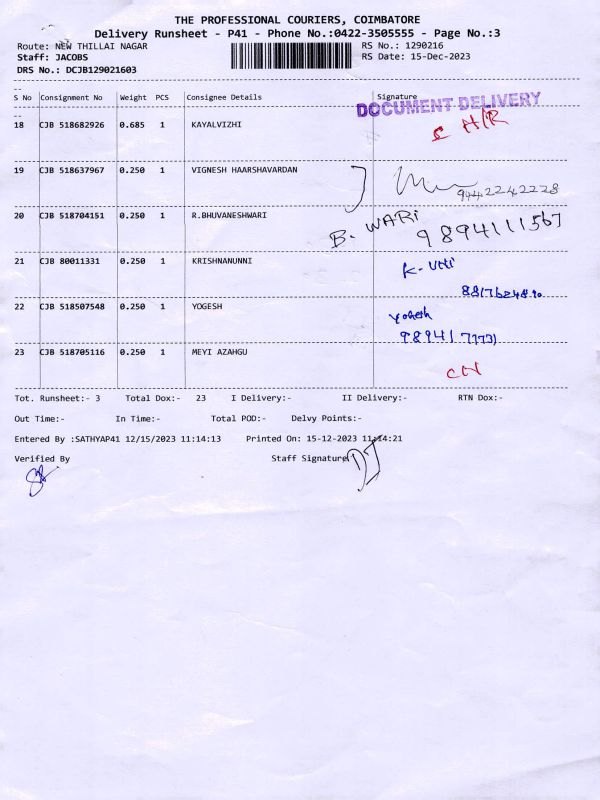 THE PROFESSIONAL COURIERS, COIMBATORE
Delivery Runsheet - P41 - Phone No.:0422-3505555 - Page No.:3
Route: NEW THILLAI NAGAR RS No.: 1290216
Staff: JACOBS RS Date: 15-Dec-2023
DRS No.: DCJB129021603
S No Consignment No Weight PCS Consignee Details Signature
DOCUMENT DELIVERY
18 CJB 518682926 0.685 1 KAYALVIZHI
19 CJB 518637967 0.250 1 VIGNESH HAARSHAVARDAN 9442242228
20 CJB 518704151 0.250 1 R.BHUVANESHWARI B. WARI 9894111567
21 CJB 80011331 0.250 1 KRISHNANUNNI
22 CJB 518507548 0.250 1 YOGESH Yogesh
23 CJB 518705116 0.250 1 MEYI AZAHGU
Tot. Runsheet:- 3 Total Dox:- 23 I Delivery:- II Delivery:- RTN Dox:-
Out Time:- In Time:- Total POD:- Delvy Points:-
Entered By :SATHYAP41 12/15/2023 11:14:13 Printed On: 15-12-2023 11:14:21
Verified By Staff Signature